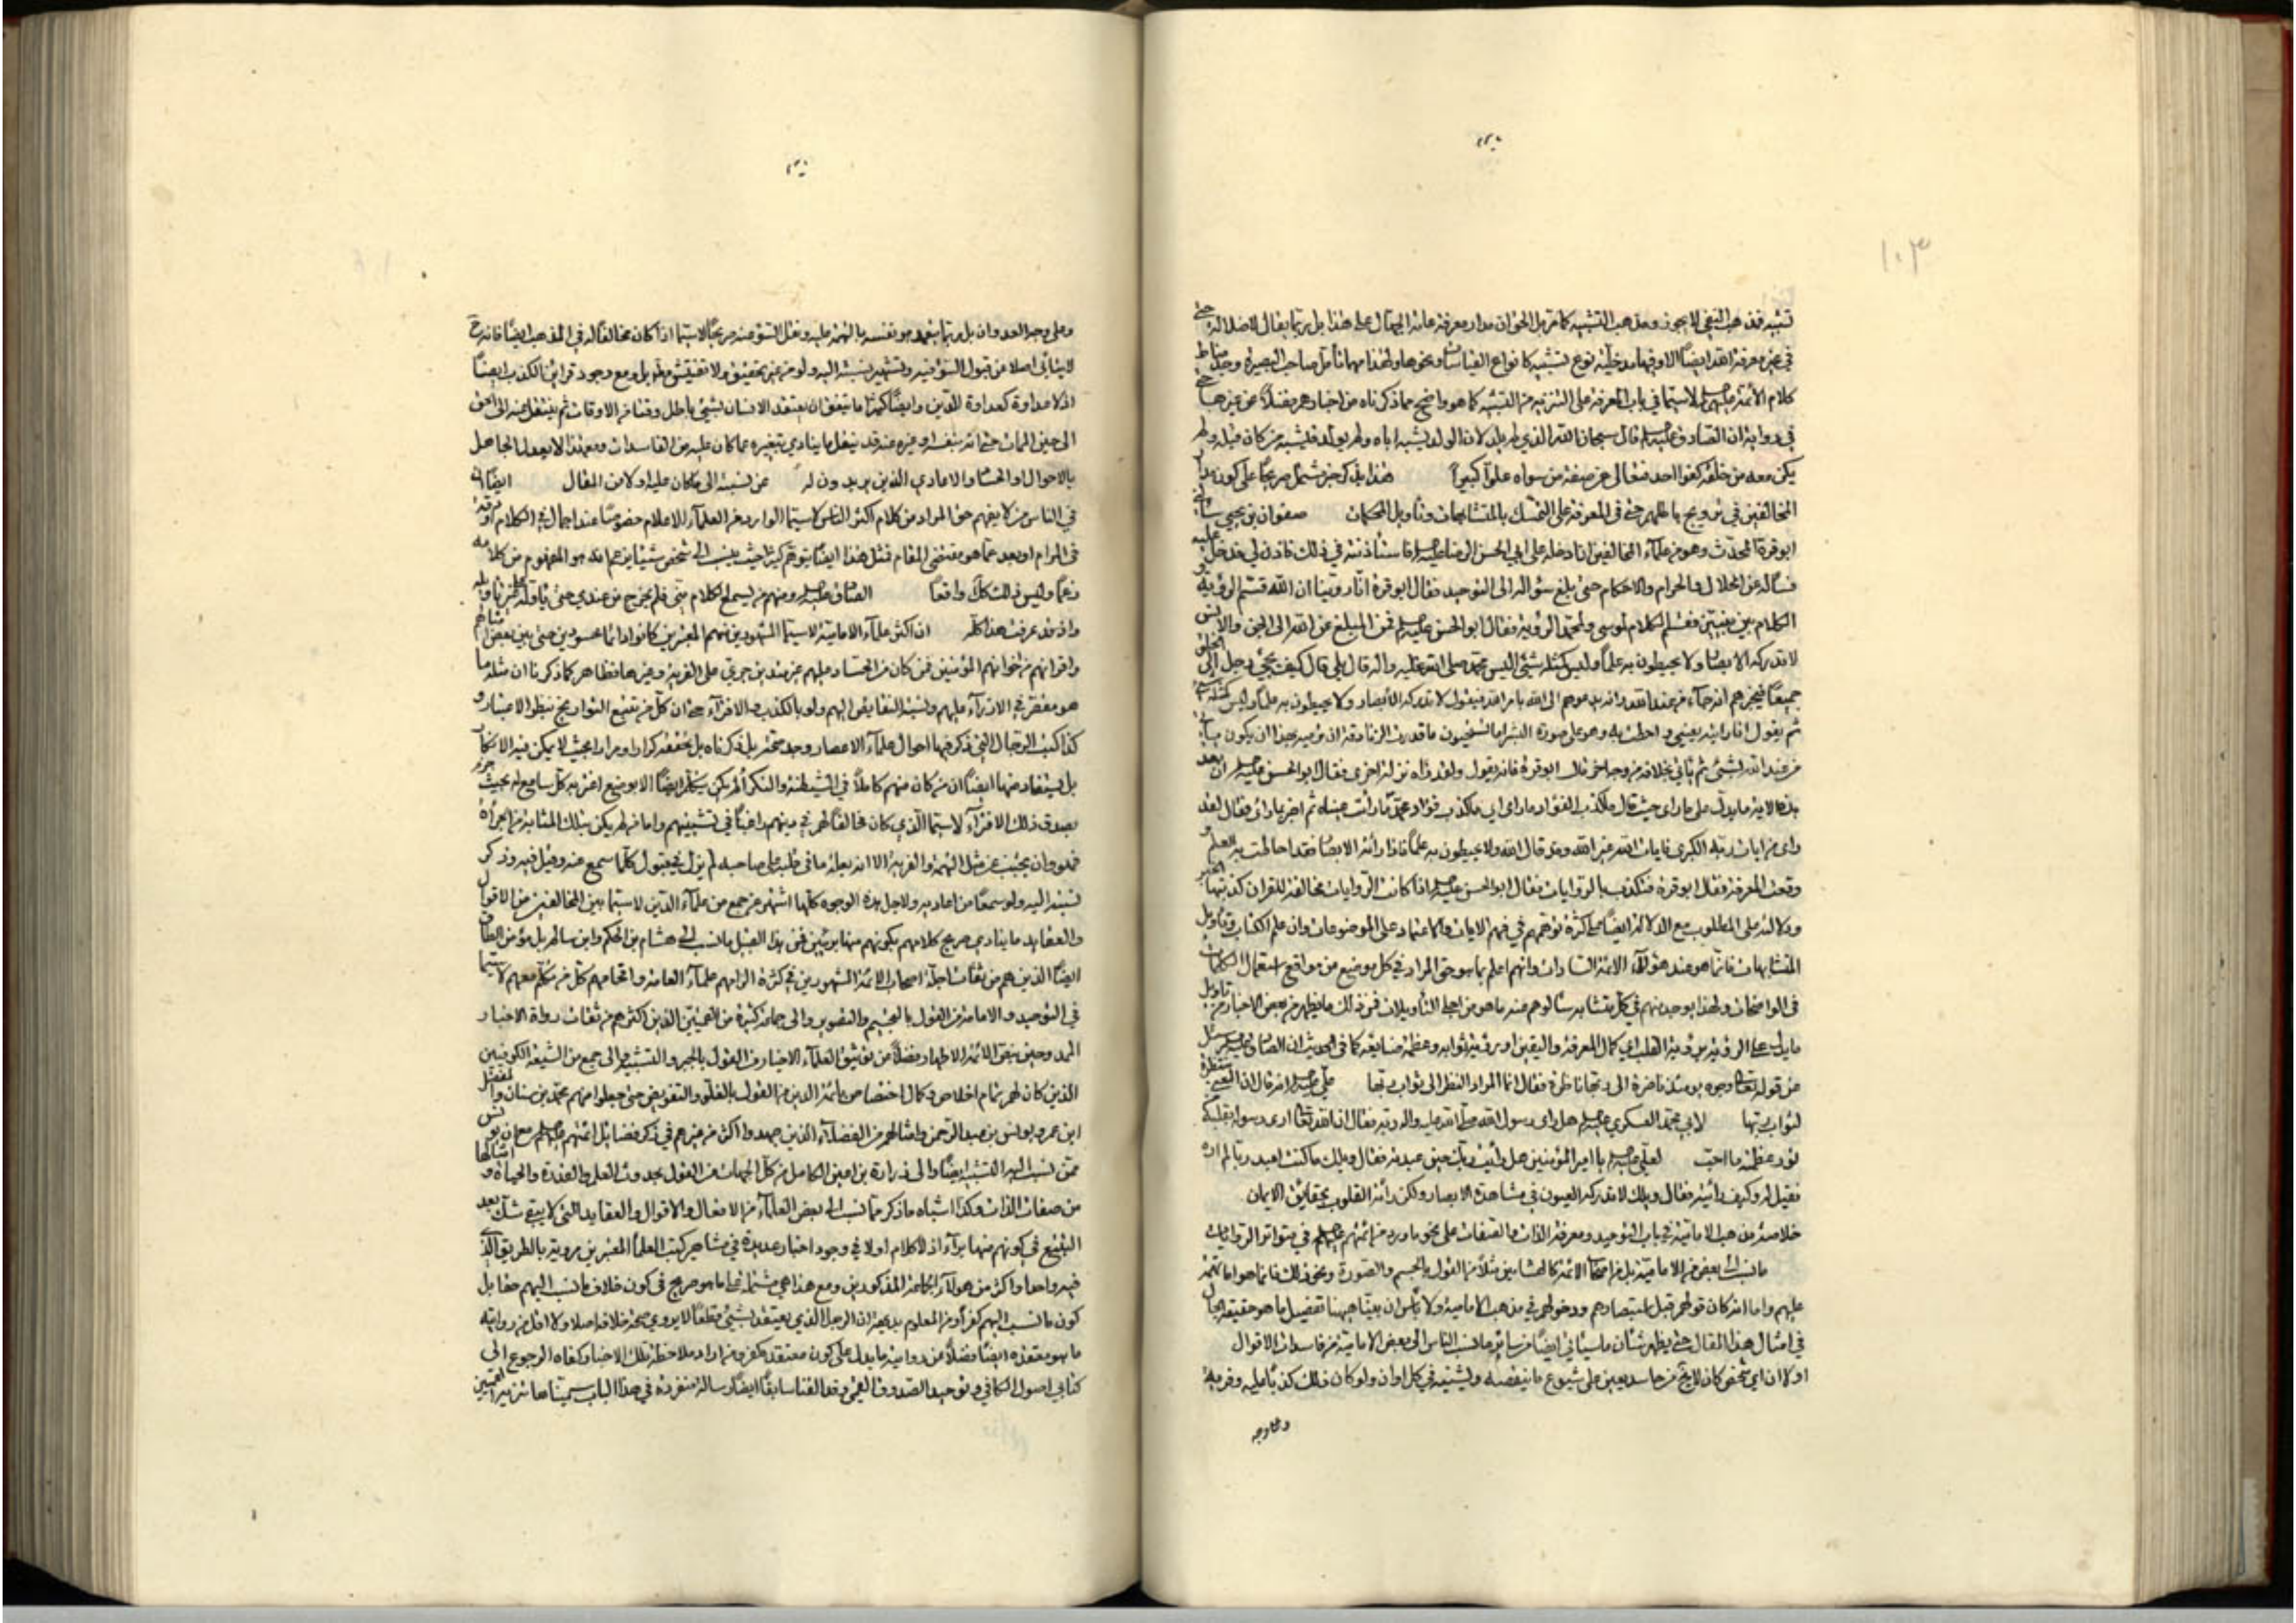 ١٠٣
تشبيه فمذهب النفي لا يجوز ومذهب التشبيه كما مر بل الحق ان مدار معرفة عامة الجهال على هذا بل ربما يقال
في غير معرفة الله ايضًا نوع تشبيه كانواع القياسات ونحوها ولهذا مهما تأمل صاحب البصيرة وجد
كلام الأئمة عليهم لا سيما في باب المعرفة على التنزيه من التشبيه كما هو واضح مما ذكرناه من اخبارهم فضلا عن غيرها
في رواية ان الصادق عليه قال سبحان الله الذي لم يلد لان الولد يشبه اباه ولم يولد فيشبه من كان قبله ولم
يكن معه من خلقه كفوا احد تعالى عن صفة من سواه علوا كبيرا هذا بل ذكر خبر مشتمل صريحا على كون
المخالفين في على التمسك بالمتشابهات وتأويل المحكمات صفوان بن يحيى
ابو قرة المحدث وهو من علماء المخالفين ان ادخله على ابي الحسن الرضا عليه فاستأذنته في ذلك فاذن لي فدخل عليه
فسأله عن الحلال والحرام والاحكام حتى بلغ سؤاله الى التوحيد فقال ابو قرة انا روينا ان الله قسم الرؤية و
الكلام بين نبيين فقسم الكلام لموسى ولمحمد الرؤية فقال ابو الحسن عليه فمن المبلغ عن الله الى الجن والانس
لا تدركه الابصار ولا يحيطون به علما وليس كمثله شيء اليس محمد صلى الله عليه واله قال بلى قال كيف يجيء رجل الى الخلق
جميعا فيخبرهم انه جاء من عند الله وانه يدعوهم الى الله بامر الله فيقول لا تدركه الأبصار ولا يحيطون به علما وليس كمثله
ثم يقول انا رايته بعيني واحطت به وهو على صورة البشر اما تستحيون ما قدرت الزنادقة ان ترميه بهذا ان يكون
من عند الله بشيء ثم ياتي بخلافه من وجه اخر قال ابو قرة فانه يقول ولقد رآه نزلة اخرى فقال ابو الحسن عليه ان بعد
هذه الاية ما يدل على ما راى حيث قال ما كذب الفؤاد ما راى اي ما كذب فؤاد محمد ما رأت عيناه ثم اخبر بما راى فقال لقد
راى من ايات ربه الكبرى فايات الله غير الله وقد قال الله ولا يحيطون به علما فاذا رأته الابصار فقد احاطت به العلم
وقعت المعرفة فقال ابو قرة فتكذب بالروايات فقال ابو الحسن عليه اذا كانت الروايات مخالفة للقران كذبتها
ودلالته على المطلوب مع الدلالة ايضًا على كثرة توهمهم في فهم الايات والاعتماد على الموضوعات وان علم الكتاب وتأويل
المتشابهات فانما هو عند هؤلاء الائمة السادات وانهم اعلم بما هو حق المراد في كل موضع من مواقع استعمال الكلمات
في الواضحات ولهذا يوجد منهم في كل متشابه سألوهم عنه ما هو من اجلى التأويلات فمن ذلك ما يظهر من بعض الاخبار من تأويل
ما يدل على الرؤية برؤية القلب اي كمال المعرفة واليقين او برؤية ثوابه وعظمة صنايعه كما في الحديث ان الصادق سئل
عن قوله تعالى وجوه يومئذ ناضرة الى ربها ناظرة فقال انما المراد النظر الى ثواب ربها علي عليه انه قال ان
لثواب ربها لابي محمد العسكري عليه هل راى رسول الله صلى الله عليه واله ربه فقال ان الله تعالى ارى رسوله بقلبه
نور عظمته ما احب لعلي عليه يا امير المؤمنين هل رأيت ربك حين عبدته فقال ويلك ما كنت اعبد ربا لم اره
فقيل له وكيف رأيته فقال ويلك لا تدركه العيون في مشاهدة الابصار ولكن رأته القلوب بحقائق الايمان
خلاصة مذهب الامامية في باب التوحيد ومعرفة الذات والصفات على نحو ما ورد من ائمتهم عليهم في متواتر الروايات
ما نسب الى بعض من الامامية بل من اصحاب الائمة كالهشامين مثلا من القول بالجسم والصورة ونحو ذلك فانما هو اما تهمة
عليهم واما انه كان قولهم قبل استبصارهم ودخولهم في مذهب الامامية ولا بأس ان بينا ههنا تفصيل ما هو حقيقة الحال
في امثال هذا المقال حتى يظهر شأن ما سيأتي ايضًا من سائر ما نسب الناس الى بعض الامامية من فاسدات الاقوال
اولا ان اي شخص كان من حاسد يعين على شيوع ما ينقصه ويشينه في كل اوان ولو كان ذلك كذبا عليه وفرية
وعلى وجه
وعلى وجه العدوان بل ربما يتعمد هو نفسه بالتهمة عليه ونقل السوء عنه صريحًا لا سيما اذا كان مخالفا له في المذهب ايضًا فانه ح
لا يتأنى اصلا عن قبول السوء فيه وتشهير نسبته اليه ولو من غير تحقيق ولا تفتيش بل ومع وجود قرائن الكذب ايضًا
اذ لا عداوة كعداوة الدين وايضًا كثيرا ما يتفق ان يعتقد الانسان بشيء باطل وقتا من الاوقات ثم ينتقل عنه الى الحق
الى حين الممات حتى انه بنفسه او غيره عنه قد ينقل ما ينادي بتغيره عما كان عليه من الفاسدات ومع هذا لا يعدل الجاهل
بالاحوال او الحساد والاعادي الذين يريدون له عن نسبته الى ما كان عليه اولا من المقال ايضًا ان
في الناس من لا يفهم حق المراد من كلام اكثر الناس لا سيما الوارد من العلماء الاعلام خصوصًا عند اجمال في الكلام او
في المرام او بعد عما هو مقتضى المقام فمثل هذا ايضًا يتوهم كثيرا حيث ينسب الى شخص شيئا يزعم انه هو المفهوم من كلامه
زعما وليس ذلك كذلك واقعا الصادق عليه ومنهم من يسمع الكلام مني فلم يخرج من عندي حتى يتأوله على غير تأويله
واذ قد عرفت هذا كله ان اكثر علماء الامامية لا سيما المشهورين منهم المعتبرين كانوا دائما محسودين حتى بين بعض امثالهم
واقرانهم من اخوانهم المؤمنين فمن كان من الحساد عليهم غير متدين جريء على الفرية وغيرها فظاهر كما ذكرنا ان مثله ما
هو مقصر في الازراء عليهم ونسبة النقايص اليهم ولو بالكذب والافتراء حتى ان كل من تتبع التواريخ بنظر الاعتبار و
كذا كتب الرجال التي ذكر فيها احوال علماء الاعصار وجد صحة ما ذكرناه بل تحققه كرارا ومرارا بحيث لا يمكن فيه الانكار
بل يستفاد منها ايضًا ان من كان منهم كاملا في الشيطنة والنكر لم يكن يتكلم ايضًا الا بوضع اغتر به كل سامع له بحيث جزم
بصدق ذلك الافتراء لا سيما الذي كان مخالفًا لهم في دينهم راغبًا في تشيينهم واما من لم يكن بتلك المثابة من الجرأة
فهو وان يجتنب عن مثل التهمة والفرية الا انه بعلة ما في قلبه على صاحبه لم يزل في قبول كلما سمع عنه وقيل فيه وذكر
نسبته اليه ولو سمعًا من اعاديه ولاجل هذه الوجوه كلها اشتهر عن جمع من علماء الدين لا سيما بين المخالفين من الاقوال
والعقايد ما ينادي صريح كلامهم بكونهم منها بريئين فمن هذا القبيل ما نسب الى هشام بن الحكم وابن سالم بل مؤمن الطاق
ايضًا الذين هم من ثقات اجلة اصحاب الائمة المشهورين في كثرة الزامهم علماء العامة وافحامهم كل من تكلم معهم لا سيما
في التوحيد والامامة من القول بالتجسيم والتصوير والى جماعة كثيرة من القميين الذين اكثرهم من ثقات رواة الاخبار
الممدوحين بنص الائمة الاطهار فضلًا عن توثيق العلماء الاخيار من القول بالجبر والتشبيه والى جمع من الشيعة الكوفيين
الذين كان لهم تمام اخلاص وكمال اختصاص بأئمة الدين من القول بالغلو والتفويض حتى جعلوا منهم محمد بن سنان والمفضل
ابن عمر ويونس بن عبد الرحمن وامثالهم من الفضلاء الذين جهدوا اكثر من غيرهم في ذكر فضايل ائمتهم عليهم مع ان يونس
ممن نسب اليه التشبيه ايضًا والى زرارة بن اعين الكامل من كل الجهات من القول بحدوث العلم والقدرة والحياة و امثالها
من صفات الذات وكذا اشباه ما ذكر مما نسب الى بعض العلماء من الافعال والاقوال والعقايد التي لا يبقى شك بعد
التتبع في كونهم منها براء اذ لا كلام اولا في وجود اخبار عديدة في مشاهير كتب العلماء المعتبرين مروية بالطريق الذي
فيه واحد او اكثر من هؤلاء الجماعة المذكورين ومع هذا هي مشتملة على ما هو صريح في كون خلاف ما نسب اليهم حقا بل
كون ما نسب اليهم كفرا ومن المعلوم بديهة ان الرجل الذي يعتقد بشيء مطلقا لا يروي صحة خلافه اصلا ولا اقل من روايته
ما هو معتقده ايضًا فضلًا من روايته ما يدل على كون معتقده كفر ومن اراد ملاحظة تلك الاخبار وكفاه الرجوع الى
كتابي اصول الكافي وتوحيد الصدوق القمي وقد الفنا سابقًا ايضًا رسالة منفردة في هذا الباب سميناها تنزيه القميين